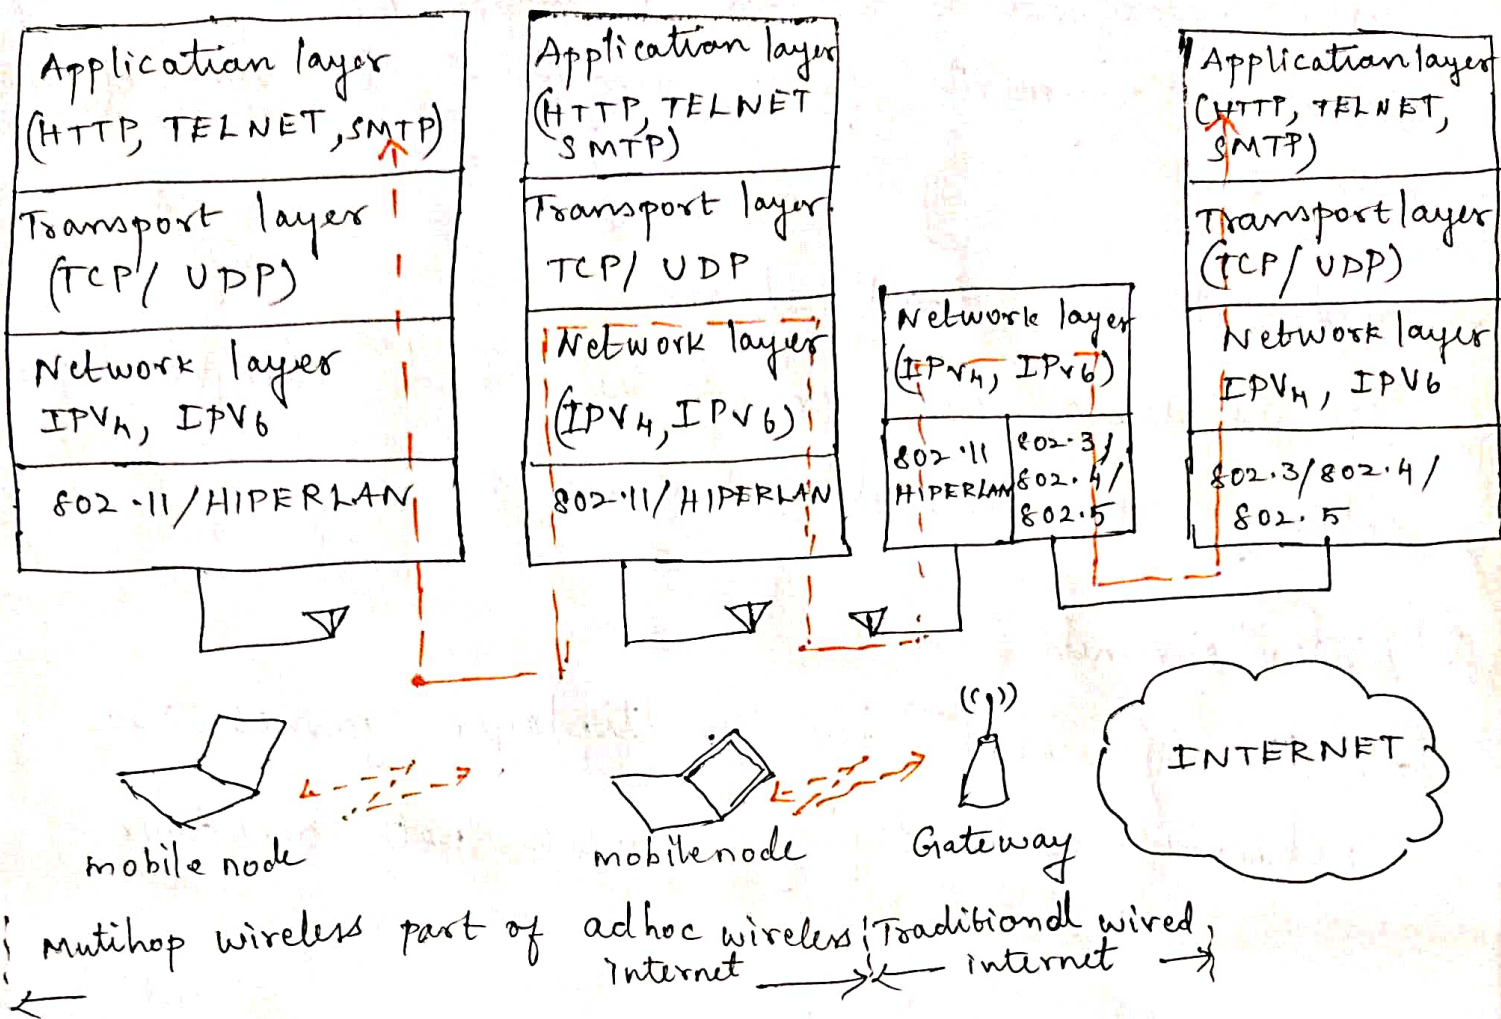 Application layer
(HTTP, TELNET, SMTP)
Transport layer
(TCP/ UDP)
Network layer
IPV4, IPV6
802.11/HIPERLAN
Application layer
(HTTP, TELNET
SMTP)
Transport layer
TCP/ UDP
Network layer
(IPV4, IPV6)
802.11/HIPERLAN
Network layer
(IPv4, IPv6)
802.11
HIPERLAN
802.3/
802.4/
802.5
Application layer
(HTTP, TELNET,
SMTP)
Transport layer
(TCP/ UDP)
Network layer
IPV4, IPV6
802.3/802.4/
802.5
INTERNET
mobile node
mobilenode
Gateway
Mutihop wireless part of adhoc wireless
internet
Traditional wired
internet